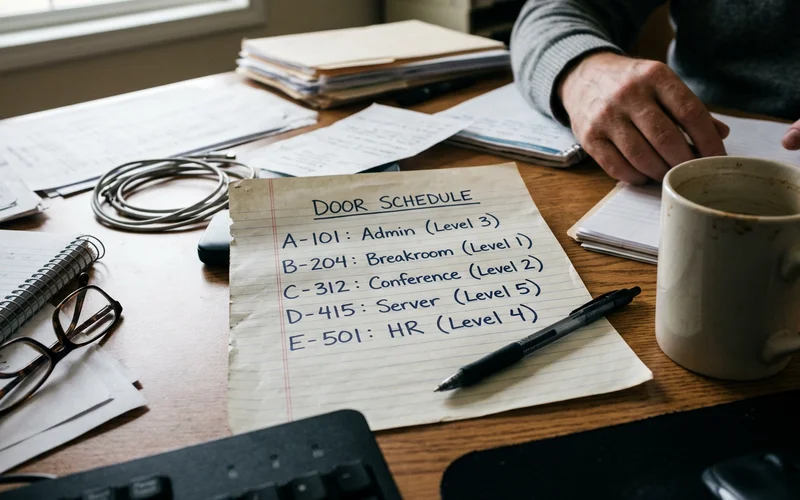 DOOR SCHEDULE
A-101: Admin (Level 3)
B-204: Breakroom (Level 1)
C-312: Conference (Level 2)
D-415: Server (Level 5)
E-501: HR (Level 4)